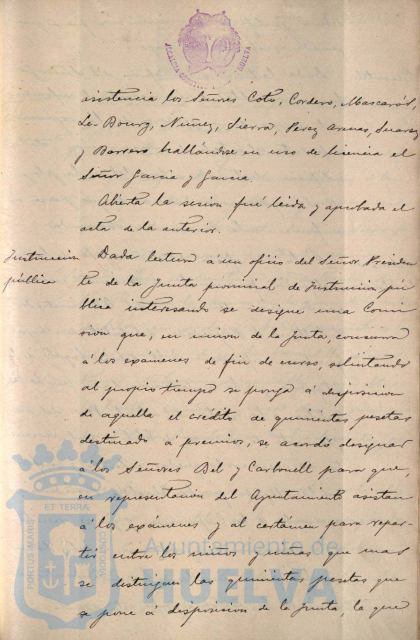 ALCALDIA HUELVA
sistencia los Señores Coto, Cordero, Mascarós,
Le-Bourg, Nuñez, Sierra, Perez Arenas, Suarez
y Barrero hallándose en uso de licencia el
Señor García y García.
Abierta la sesion fué leida y aprobada el
acta de la anterior.
Instruccion
pública
Dada lectura á un oficio del Señor Presiden
te de la Junta provincial de Instruccion pú
blica interesando se designe una Comi
sion que, en union de la Junta, concurra
á los exámenes de fin de curso, solicitando
al propio tiempo se ponga á disposicion
de aquella el crédito de quinientas pesetas
destinado á premios, se acordó designar
á los Señores Bel y Carbonell para que,
en representacion del Ayuntamiento asistan
á los exámenes y al certámen para repar
tir entre los niños y niñas que mas
se distingan las quinientas pesetas que
se pone á disposicion de la Junta, la que
PORTUS MARIS ET TERRÆ CUSTODIA
Ayuntamiento de
HUELVA